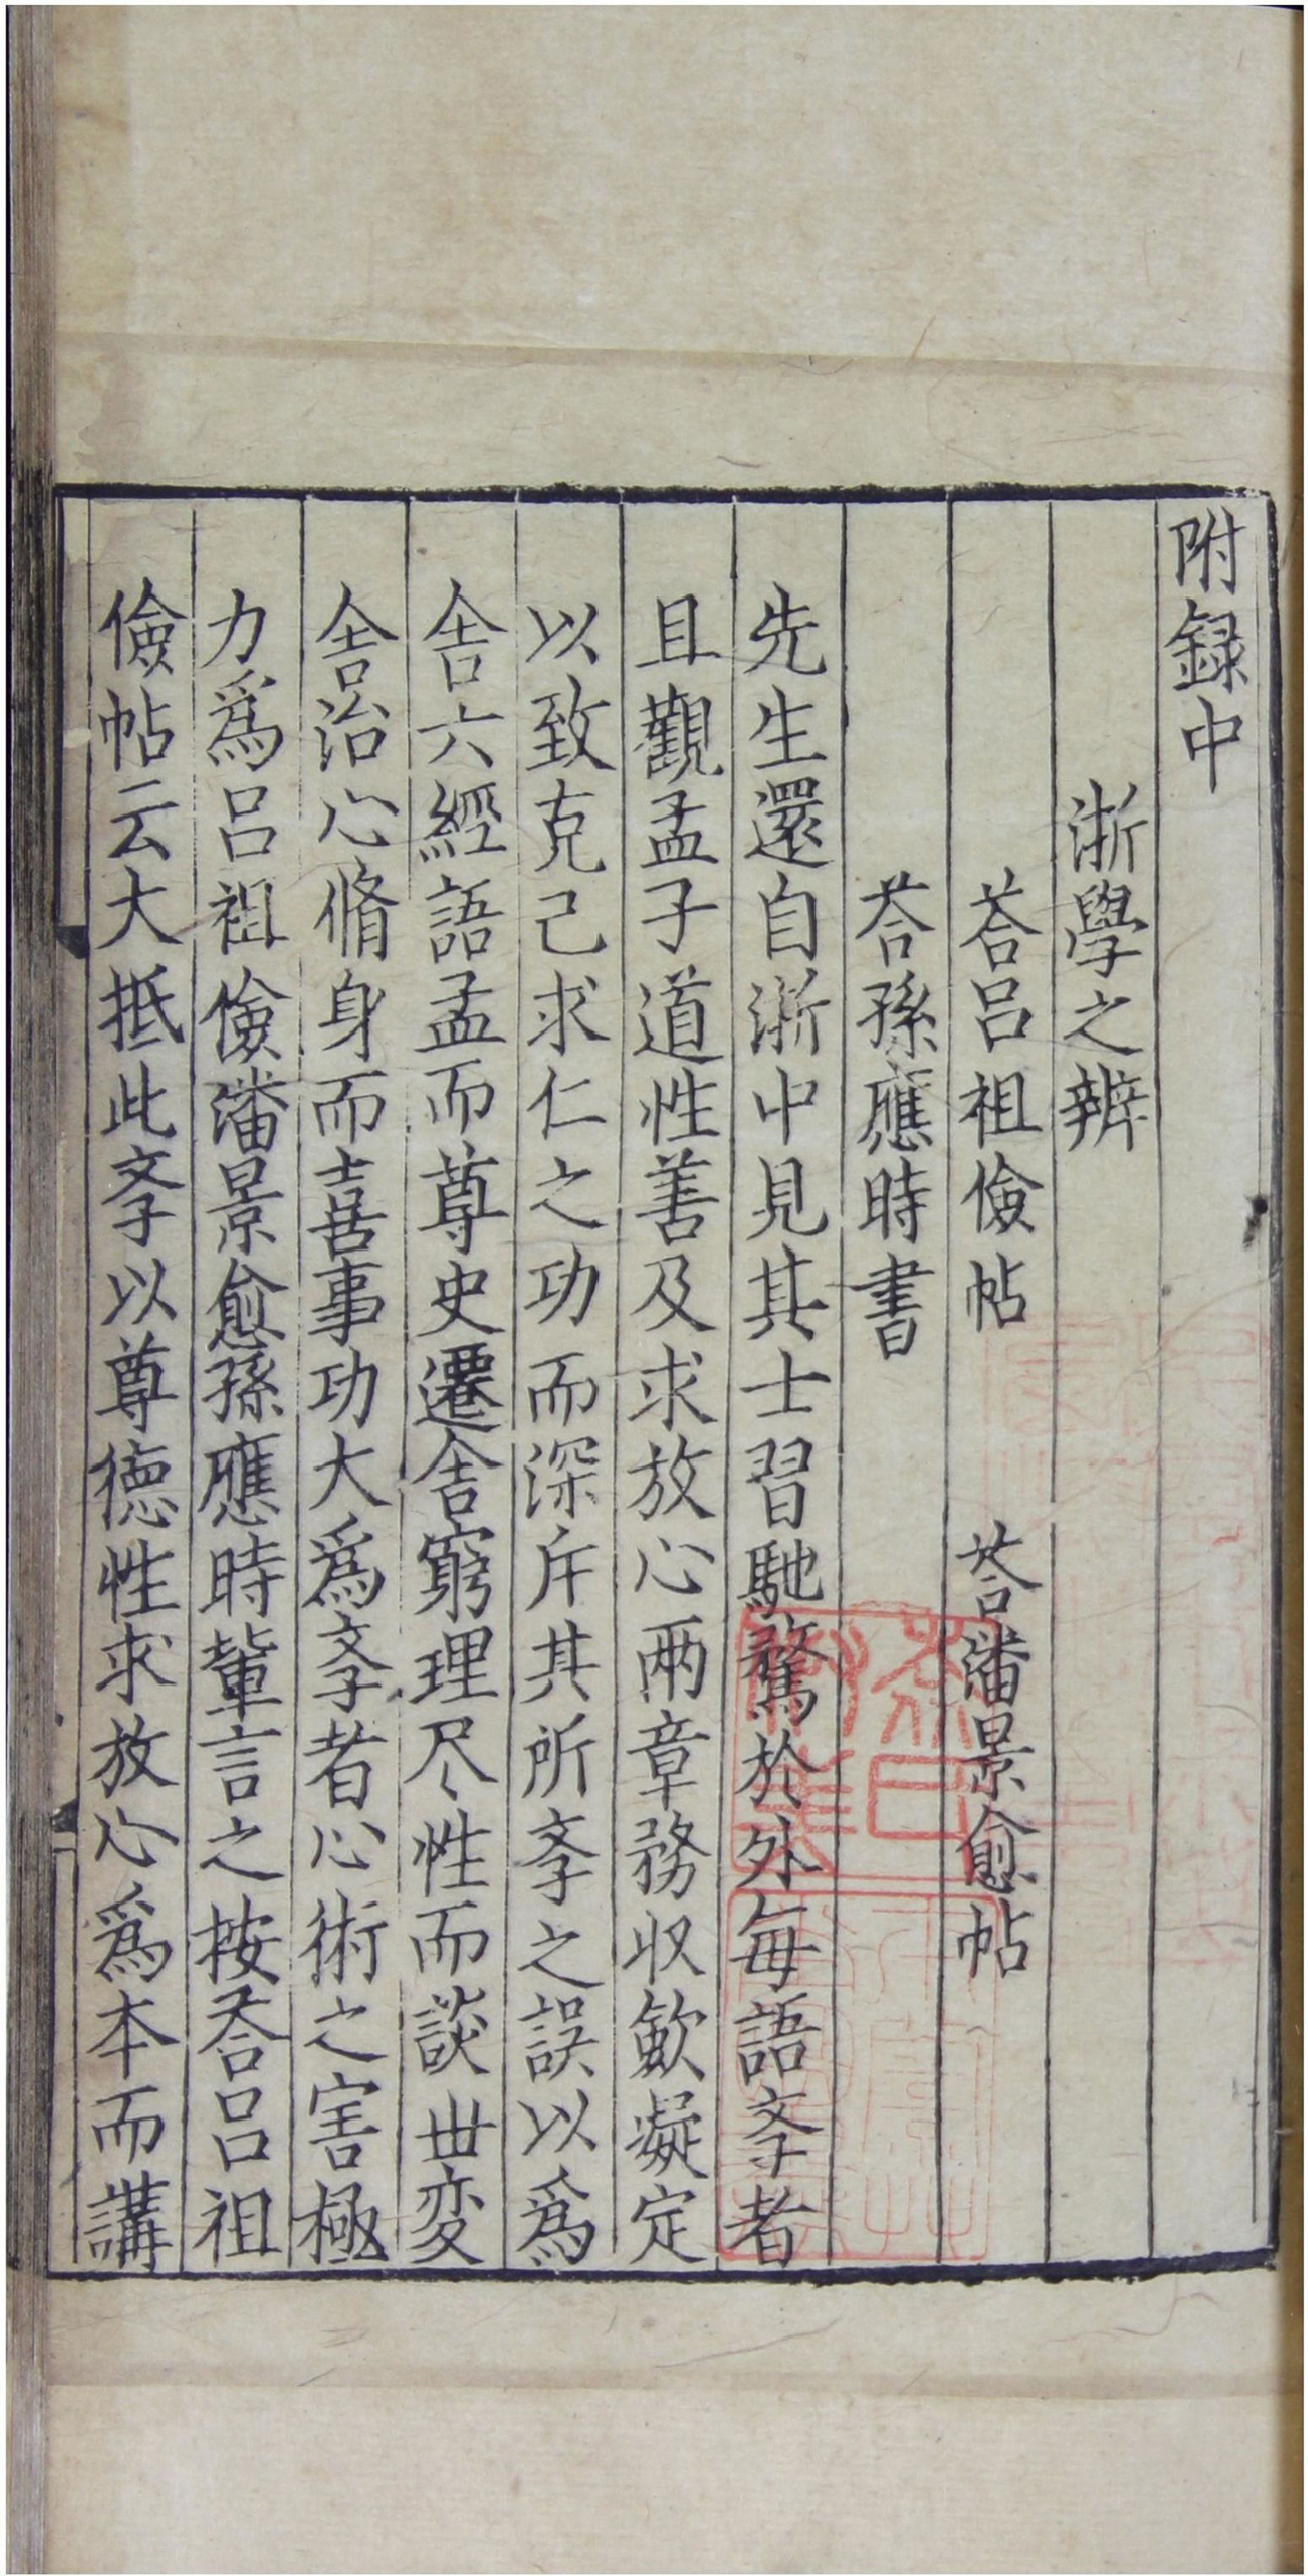 附録中
浙學之辨
荅吕祖儉帖　荅潘景愈帖
荅孫應時書
先生還自浙中見其士習馳騖於外每語斈者
且觀孟子道性善及求放心兩章務收歛凝定
以致克己求仁之功而深斥其所斈之誤以爲
舍六經語孟而尊史遷舍窮理尽性而談丗变
舍治心脩身而喜事功大爲斈者心術之害極
力爲吕祖儉潘景愈孫應時軰言之按荅吕祖
儉帖云大抵此斈以尊德性求放心爲本而講